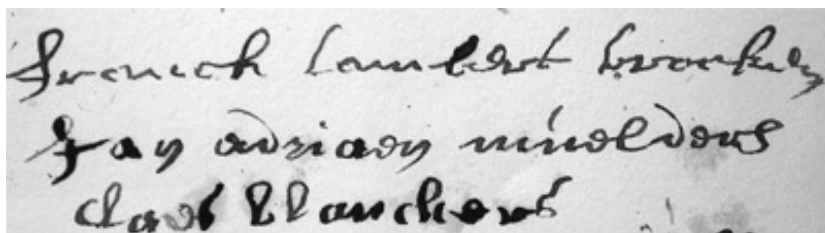 franck lambert broeken
Jan adriaen muelders
claes blanckers